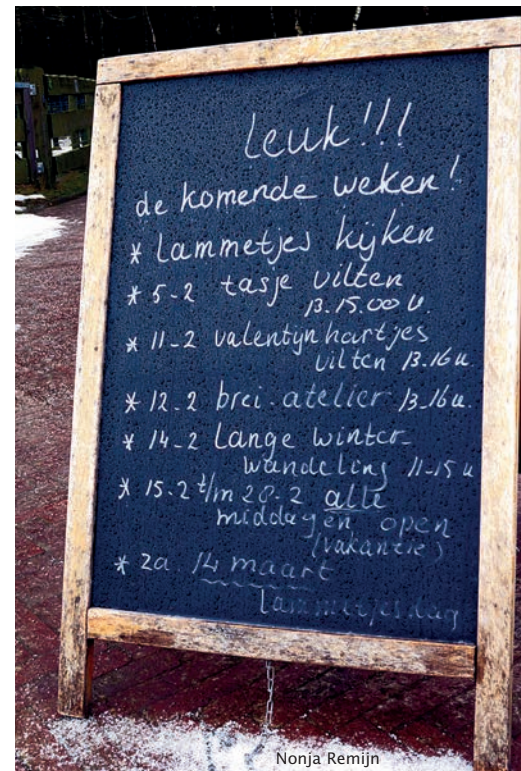 leuk!!!
de komende weken!
* lammetjes kijken
* 5-2 tasje vilten
13.15.00 u.
* 11-2 valentynhartjes
vilten 13.16u.
* 12-2 brei-atelier 13-16u.
* 14-2 lange winter-
wandeling 11-15 u
* 15-2 t/m 28-2 alle
middagen open
(vakantie)
* za 14 maart
lammetjesdag
Nonja Remijn